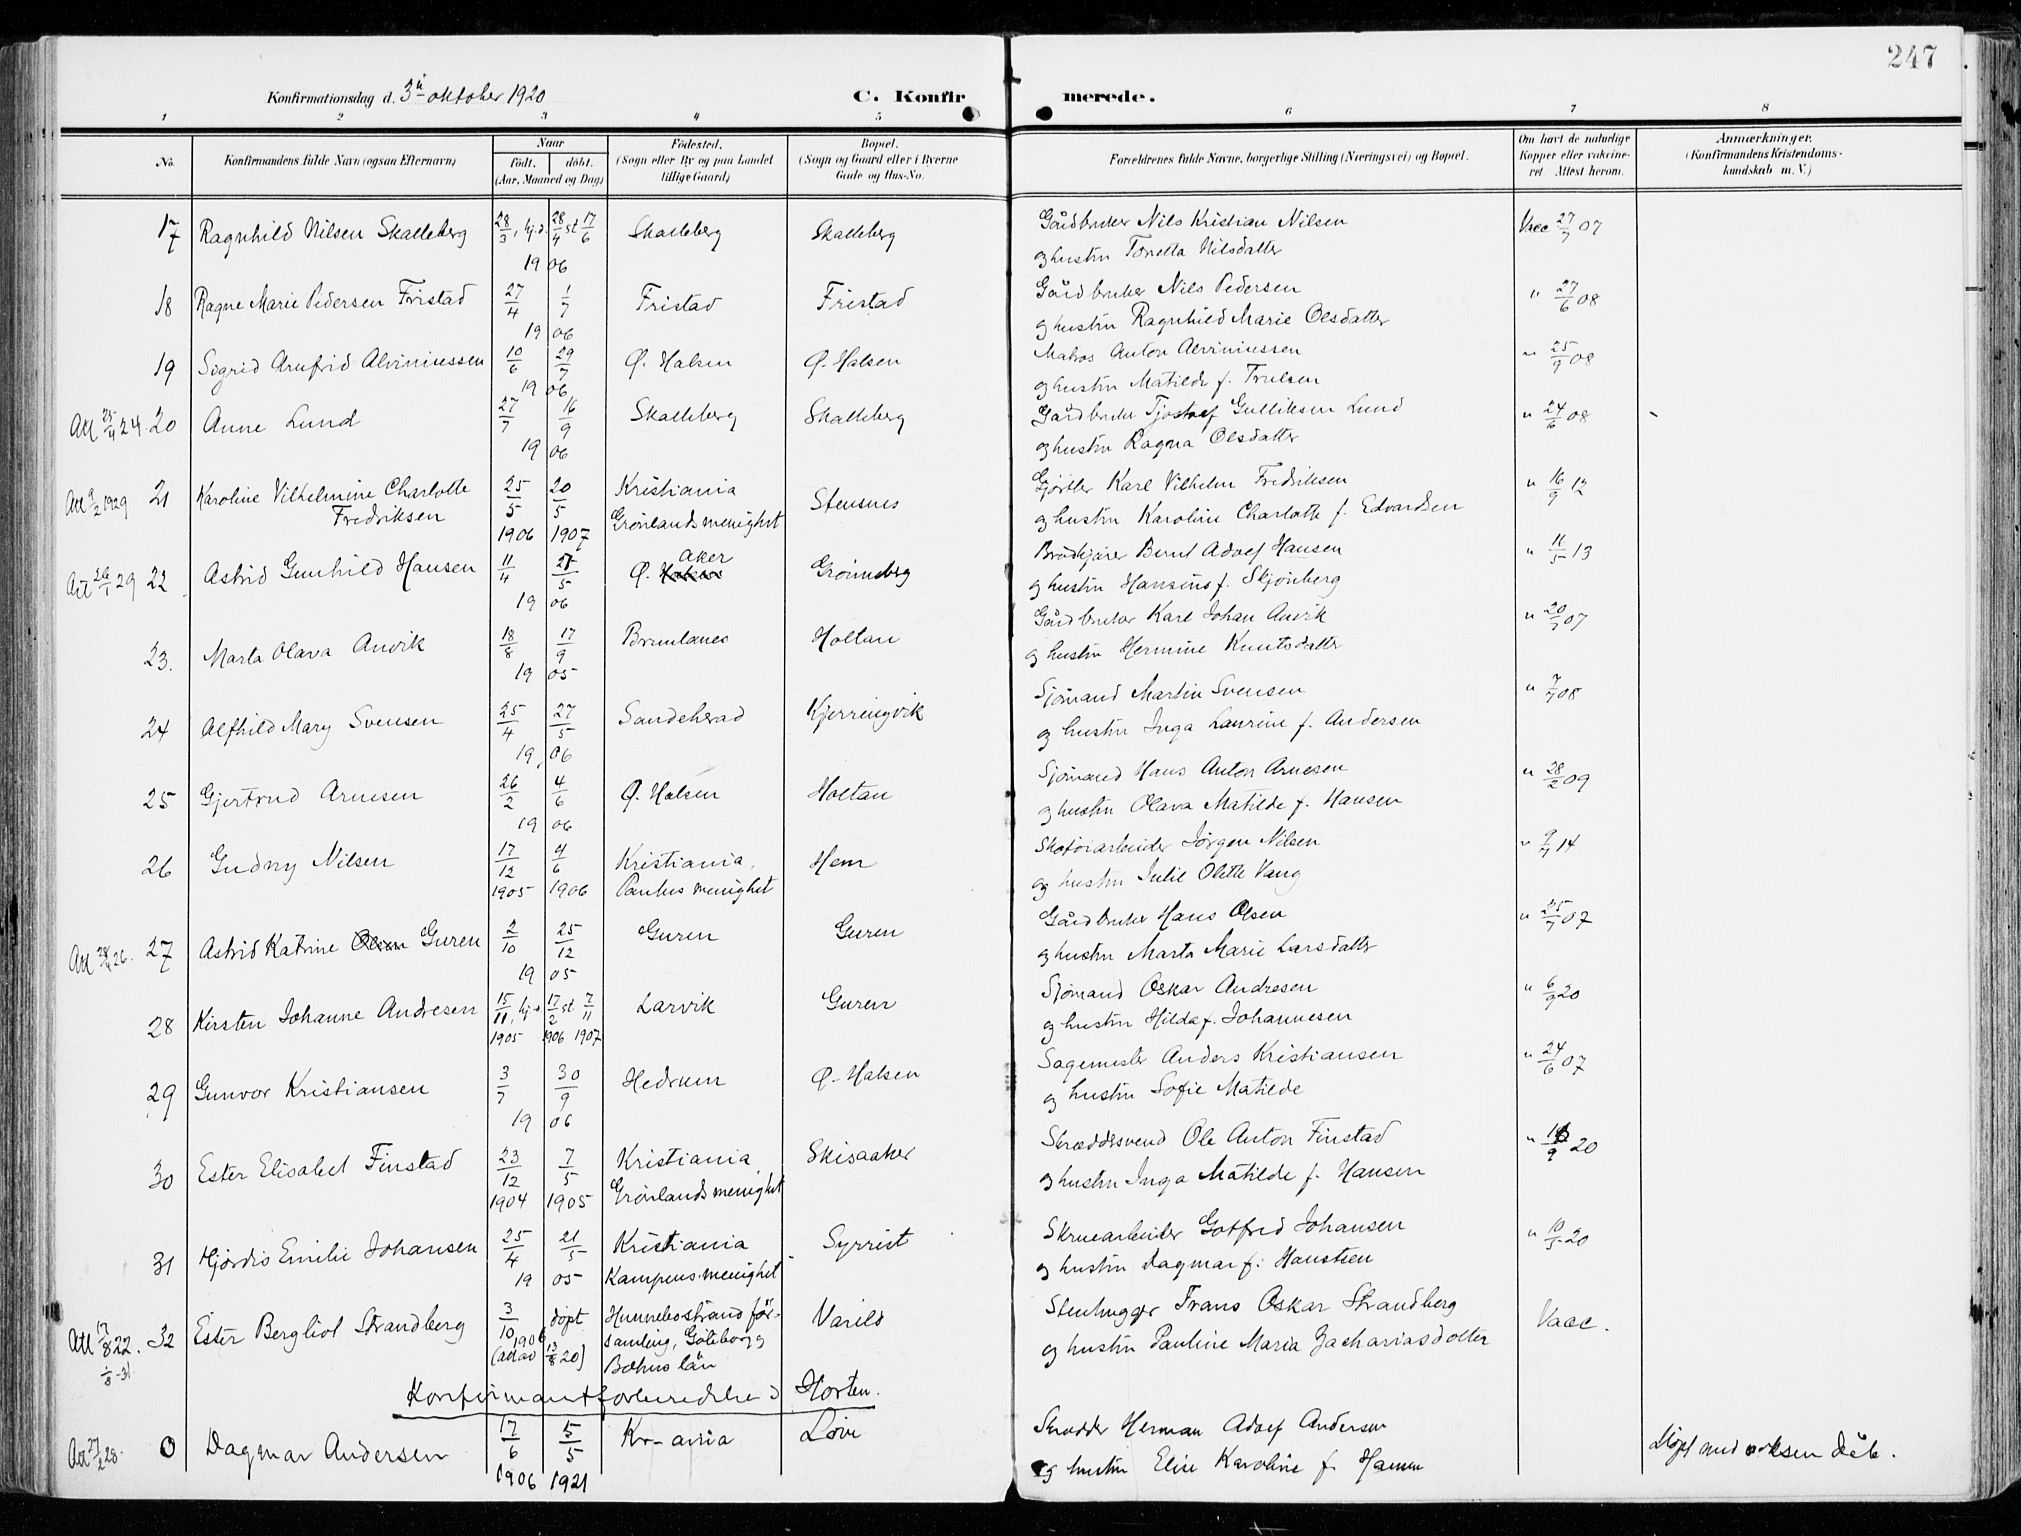 247
Konfirmationsdag d. 3di oktober 1920
C. Konfir merede.
1 2 3 4 5 6 7 8
No.
Konfirmandens fulde Navn (ogsaa Efternavn)
Naar
født. døbt.
(Aar, Maaned og Dag)
Fødested.
(Sogn eller By og paa Landet
tillige Gaard)
Bopæl.
(Sogn og Gaard eller i Byerne
Gade og Hus-No.
Forældrenes fulde Navne, borgerlige Stilling (Næringsvei) og Bopæl.
Om havt de naturlige
Kopper eller vakcine-
ret Attest herom.
Anmærkninger.
(Konfirmandens Kristendoms-
kundskab m. V.)
17 Ragnhild Nilsen Skalleberg 28/3, hj.d. 28/4 st 17/6 Skalleberg Skalleberg Gårdbruker Nils Kristian Nilsen Vacc 27/7 07
1906 og hustru Toretta Nilsdatter
18 Ragne Marie Pedersen Fristad 27/4 1/7 Fristad Fristad Gårdbruker Nils Pedersen " 27/6 08
1906 og hustru Ragnhild Marie Olsdatter
19 Sigrid Arnfrid Alviniussen 10/6 29/7 Ø. Halsen Ø. Halsen Matros Anton Alviniussen " 25/9 08
1906 og hustru Matilde f. Trulsen
Att 25/4 24. 20 Anne Lund 27/7 16/9 Skalleberg Skalleberg Gårdbruker Tjostolf Gulliksen Lund " 24/6 08
1906 og hustru Ragna Olsdatter
Att 9/2 1929 21 Karoline Vilhelmine Charlotte 25/5 20/5 Kristiania Stensnes Gjørtler Karl Vilhelm Fredriksen " 16/9 12
Fredriksen 1906 1907 Grønlands menighet og hustru Karoline Charlotte f. Edvardsen
Att 26/1 29 22 Astrid Gunhild Hansen 11/4 27/5 Ø. Halsen Aker Grønneberg Brødkjører Bernt Adolf Hansen " 11/5 13
1906 og hustru Hansine f. Skjønberg
23. Marta Olava Anvik 18/8 17/9 Brunlanes Holtan Gårdbruker Karl Johan Anvik " 20/7 07
1905 og hustru Hermine Knutsdatter
24 Alfhild Mary Svensen 25/4 27/5 Sandeherad Kjerringvik Sjømand Martin Svensen " 7/7 08
1906 og hustru Inga Laurine f. Andersen
25 Gjertrud Arnesen 26/2 4/6 Ø. Halsen Holtan Sjømand Hans Anton Arnesen " 28/2 09
1906 og hustru Olava Matilde f. Hansen
26 Gudny Nilsen 17/12 4/6 Kristiania, Hem Skotøiarbeider Jørgen Nilsen " 9/7 14
1905 1906 Paulus menighet og hustru Julie Olette Vang
Att 26. 27 Astrid Katrine Olsen Guren 2/10 25/12 Guren Guren Gårdbruker Hans Olsen " 25/7 07
1905 og hustru Marta Marie Larsdatter
28 Kirsten Johanne Andresen 15/11, hj.d. 17/2 st. 7/11 Larvik Guren Sjømand Oskar Andresen " 6/9 20
1905 1906 1907 og hustru Hilda f. Johannesen
29 Gunvor Kristiansen 3/7 30/9 Hedrum Ø. Halsen Sagemester Anders Kristiansen " 24/6 07
1906 og hustru Sofie Matilde
30 Ester Elisabet Finstad 23/12 7/5 Kristiania Skisaaker Skræddesvend Ole Anton Finstad " 16/9 20
1904 1905 Grønlands menighet og hustru Inga Matilde f. Hansen
31 Hjørdis Emilie Johansen 25/4 21/5 Kristiania Syrrist Skruearbeider Gotfred Johansen " 10/5 20
1905 Kampens menighet og hustru Dagmar f. Hanstsen
Att 17/8 22. 32 Ester Bergliot Strandberg 3/10 døpt Hunnebostrand för- Varild Stenhugger Frans Oskar Strandberg Vacc.
1/8-31 1906 (att av 13/8 20) samling, Göteborg og Bohus län og hustru Pauline Maria Zachariasdotter
Konfirmantforberedelse i Horten.
Att 27/2 28. 0 Dagmar Andersen 17/6 5/5 Kr-ania Løve Skrædder Herman Adolf Andersen
1906 1921 og hustru Elise Karoline f. Hansen Døpt med voksen dåb.